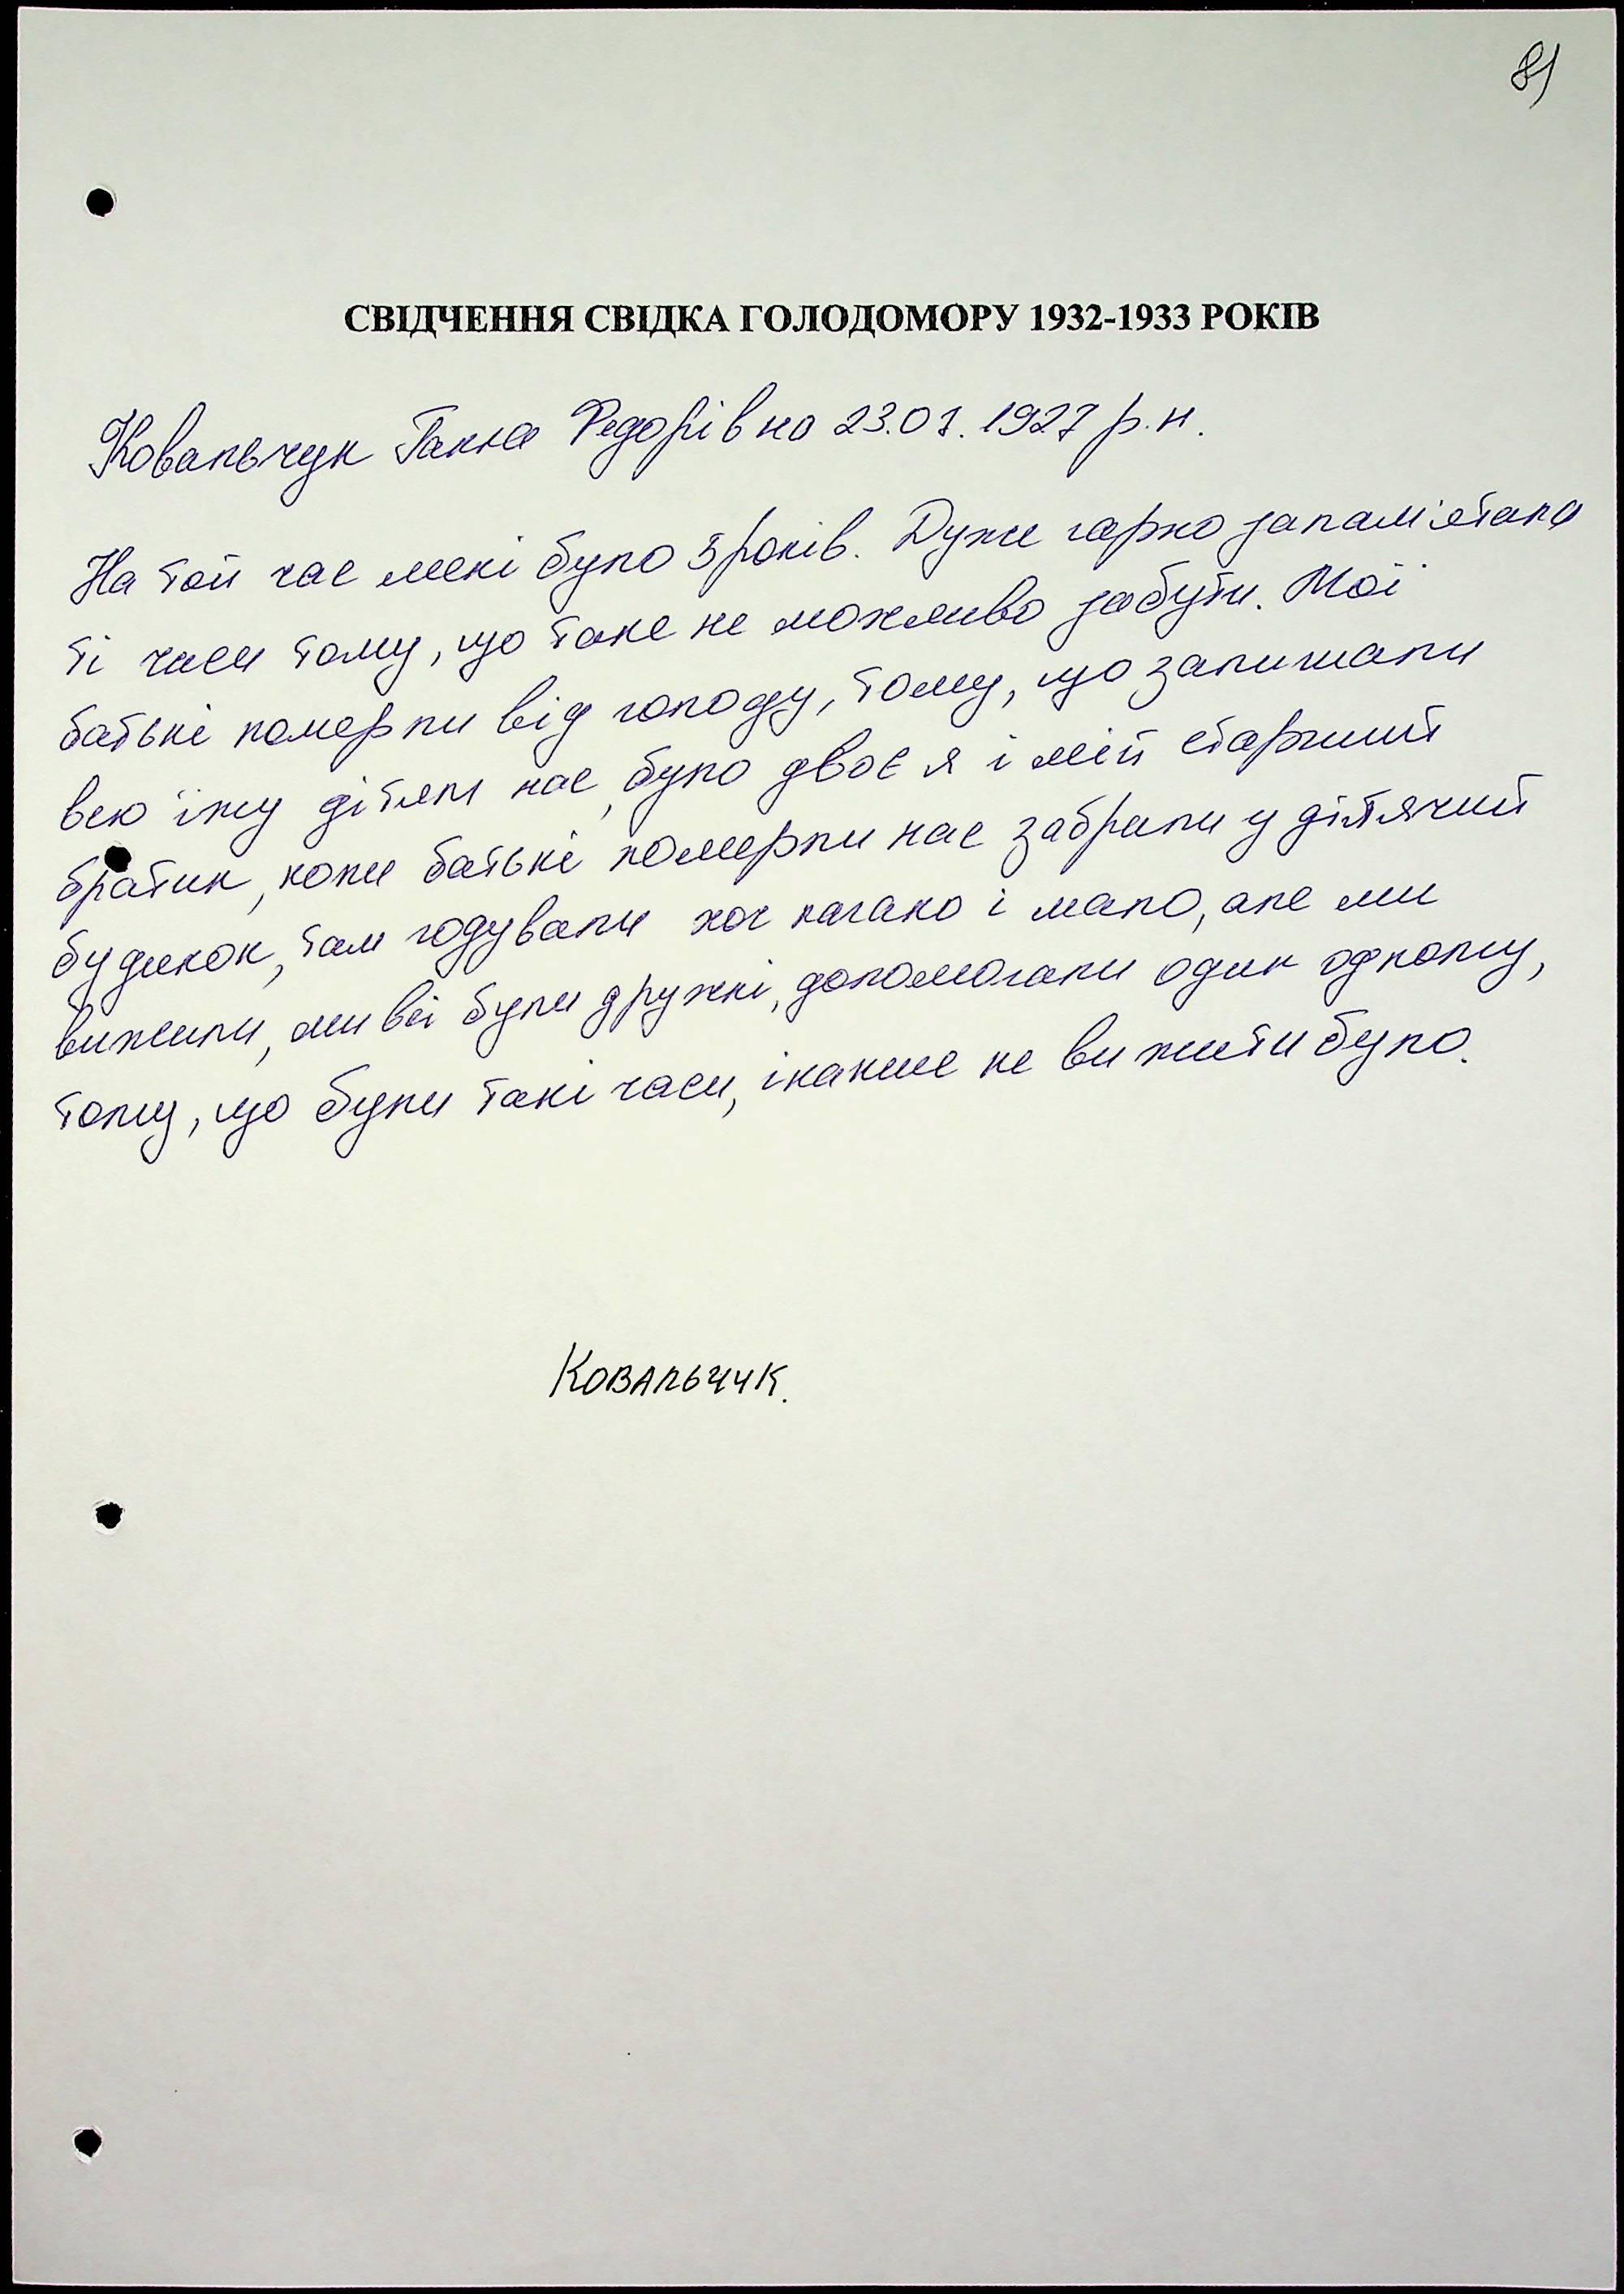 81
СВІДЧЕННЯ СВІДКА ГОЛОДОМОРУ 1932-1933 РОКІВ
Ковальчук Ганна Федорівна 23.01.1927 р.н.
На той час мені було 5 років. Дуже гарно запам'ятала
ті часи тому, що таке не можливо забути. Мої
батькі померли від голоду, тому, що залишали
всю їжу дітям нас, було двоє я і мій старший
братик, коли батькі померли нас забрали у дітячий
будинок, там годували хоч погано і мало, але ми
вижили, ми всі були дружні, допомогали один одному,
тому, що були такі часи, інакше не вижити було.
КОВАЛЬЧУК.